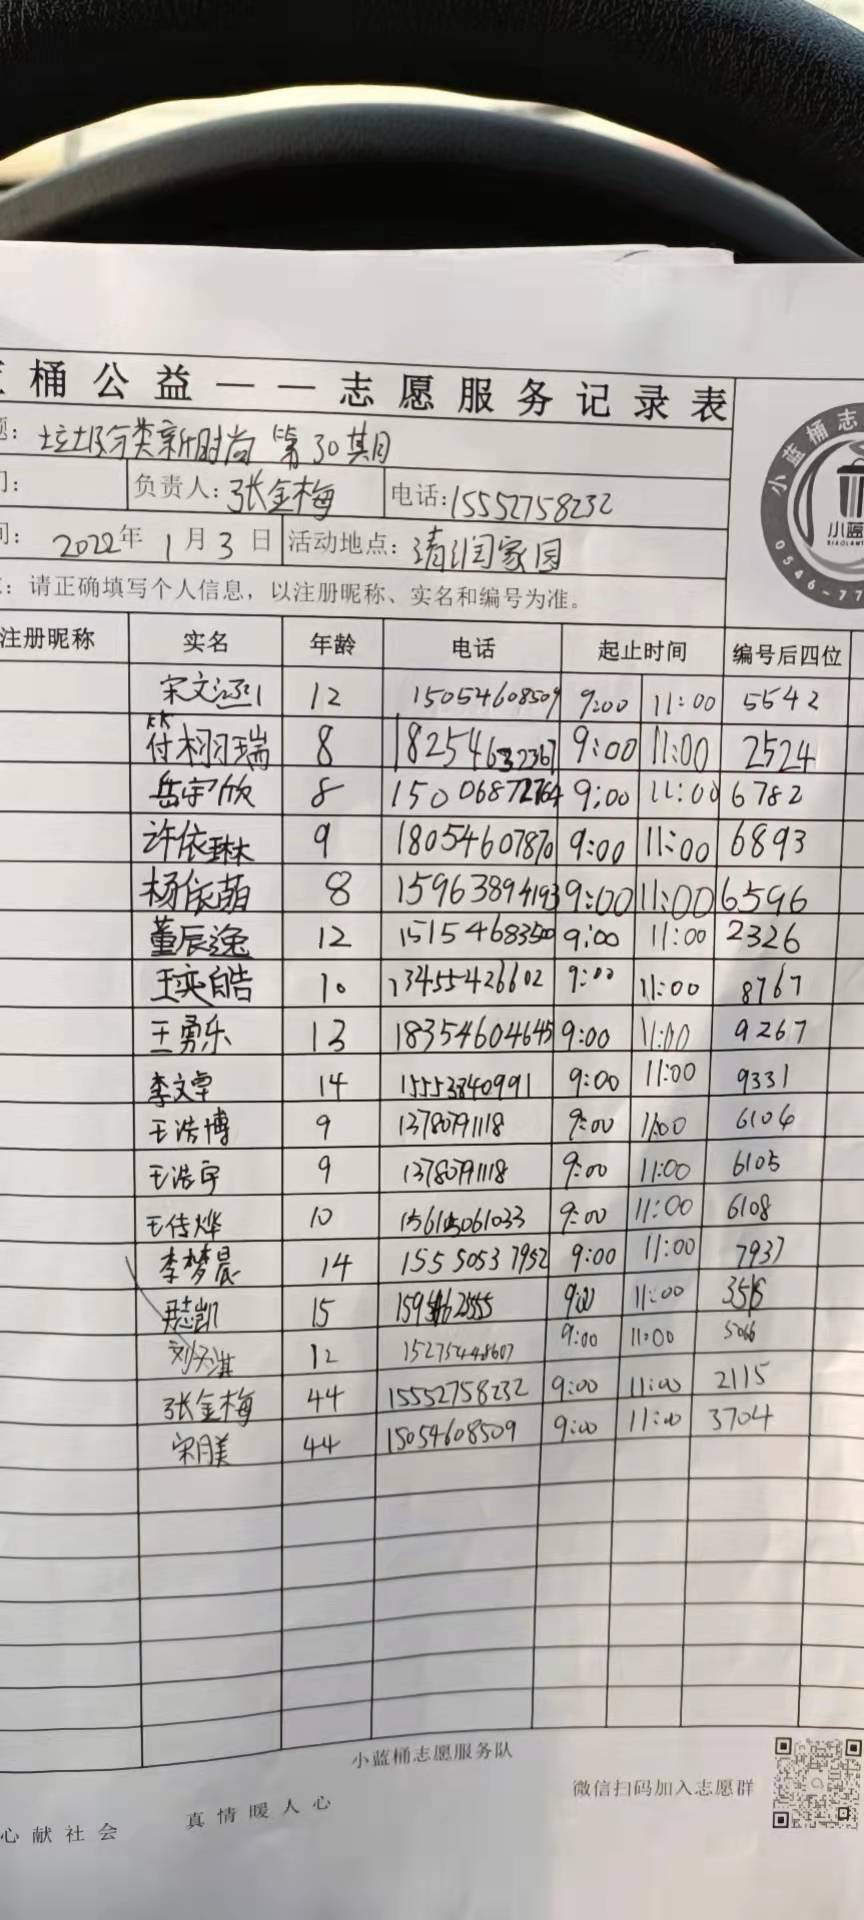 桶公益——志愿服务记录表
题: 垃圾分类新时尚 第30期
门: 负责人: 张金梅 电话: 15552758232
间: 2022年 1月3日 活动地点: 清润家园
: 请正确填写个人信息，以注册昵称、实名和编号为准。
注册昵称 实名 年龄 电话 起止时间 编号后四位
宋文 12 15054608509 9:00 11:00 5542
付栩瑞 8 18254632367 9:00 11:00 2524
岳宇欣 8 15006872764 9:00 11:00 6782
许依琳 9 18054607870 9:00 11:00 6893
杨依萌 8 15963894193 9:00 11:00 6596
董辰逸 12 15154683500 9:00 11:00 2326
王奕皓 10 13455426602 9:00 11:00 8767
王勇乐 13 18354604645 9:00 11:00 9267
李文卓 14 15553840991 9:00 11:00 9331
王浩博 9 13780791118 9:00 11:00 6104
王浩宇 9 13780791118 9:00 11:00 6105
王传烨 10 9:00 11:00 6108
李梦晨 14 15550537952 9:00 11:00 7937
凯 15 9:00 11:00
刘天淇 12 15275448607 9:00 11:00 5066
张金梅 44 15552758232 9:00 11:00 2115
宋月美 44 15054608509 9:00 11:00 3704
小蓝桶志愿服务队
微信扫码加入志愿群
心献社会 真情暖人心
小蓝桶志
小蓝
0546-77